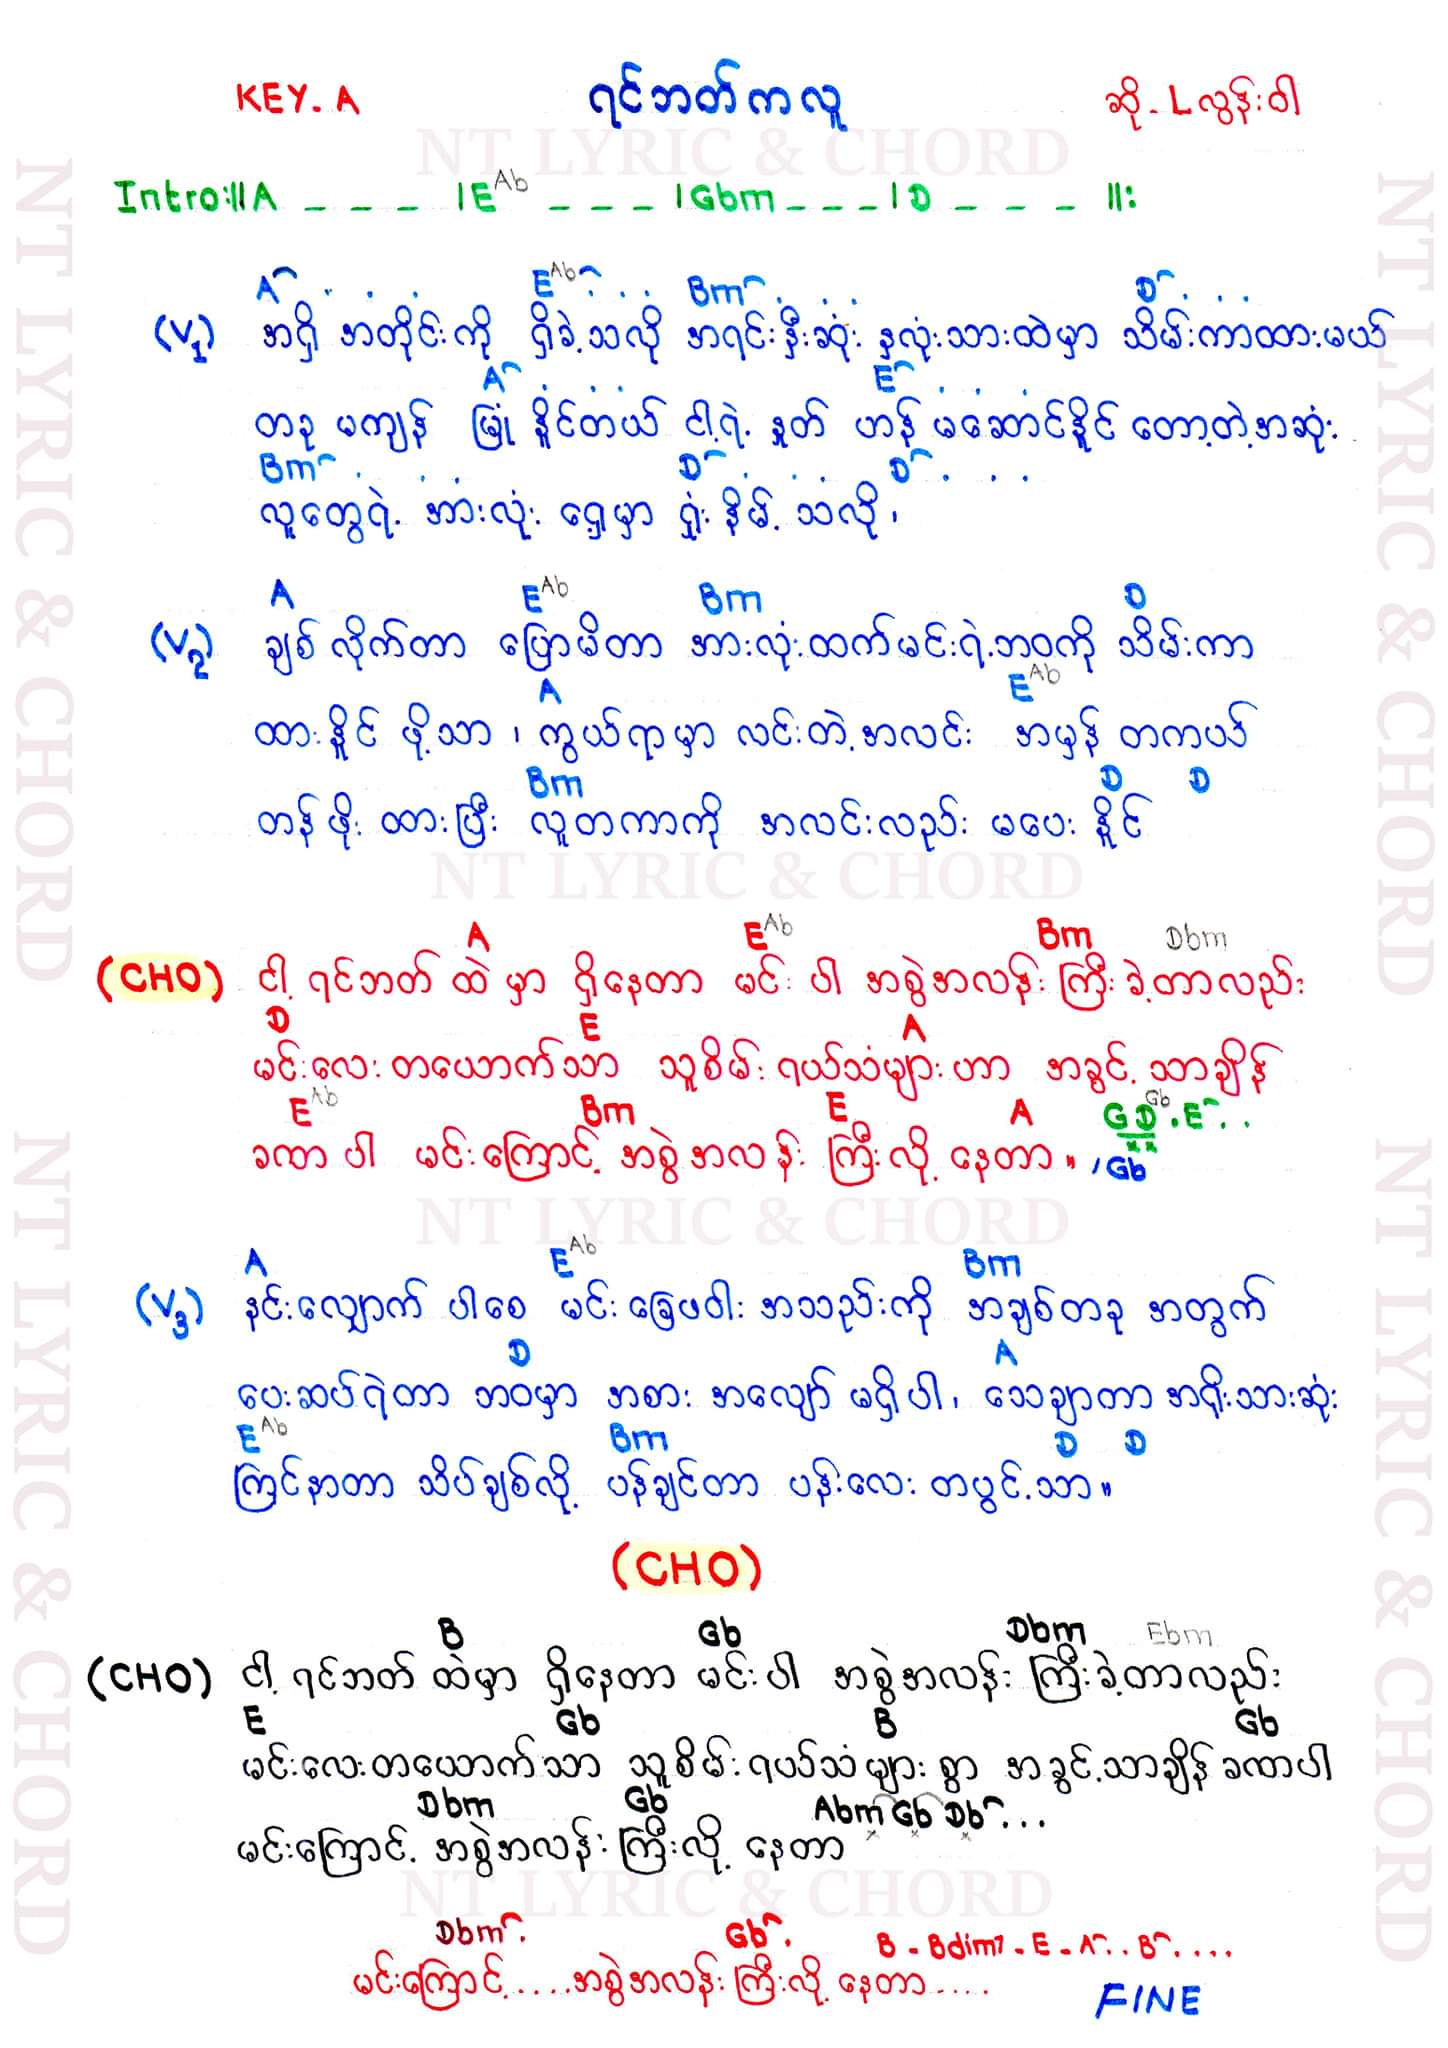 KEY. A ရင်ဘတ်ကလူ ဆို. L လွန်းဝါ
NT LYRIC & CHORD
Intro:||A _ _ _ |E Ab _ _ _ |Gbm _ _ _ |D _ _ _ ||:
A E Ab Bm D
(V1) အရှိ အတိုင်းကို ရှိခဲ့သလို အရင်းနှီးဆုံး နှလုံးသားထဲမှာ သိမ်းကာထားမယ်
A E
တခု မကျန် မြုံ နိူင်တယ် ငါ့ရဲ့ နှုတ် ဟန် မဆောင်နိူင် တော့တဲ့အဆုံး
Bm D D
လူတွေရဲ့ အားလုံး ရှေ့မှာ ရှုံး နိမ့် သလို၊
A E Ab Bm D
(V2) ချစ် လိုက်တာ ပြောမိတာ အားလုံးထက်မင်းရဲ့ဘဝကို သိမ်းကာ
A E Ab
ထားနိူင် ဖို့သာ ၊ ကွယ်ရာမှာ လင်းတဲ့အလင်း အမှန် တကယ်
Bm D D
တန်ဖိုး ထားပြီး လူတကာကို အလင်းလည်း မပေး နိူင်
NT LYRIC & CHORD
A E Ab Bm Dbm
(CHO) ငါ့ ရင်ဘတ် ထဲ မှာ ရှိနေတာ မင်း ပါ အစွဲအလန်း ကြီးခဲ့တာလည်း
D E A
မင်းလေးတယောက်သာ သူစိမ်းရယ်သံများဟာ အခွင့် သာချိန်
E Ab Bm E A G D Gb . E . .
ခဏ ပါ မင်းကြောင့် အစွဲအလန်း ကြီးလို့ နေတာ။ / Gb
NT LYRIC & CHORD
A E Ab Bm
(V3) နင်းလျှောက် ပါစေ မင်းခြေဖဝါး အသည်းကို အချစ်တခု အတွက်
D A
ပေးဆပ်ရဲတာ ဘဝမှာ အစား အလျော် မရှိပါ၊ သေချာတာ အရိုးသားဆုံး
E Ab Bm D D
ကြင်နာတာ သိပ်ချစ်လို့ ပန်ချင်တာ ပန်းလေး တပွင့်သာ။
(CHO)
B Gb Dbm Ebm
(CHO) ငါ့ ရင်ဘတ် ထဲမှာ ရှိနေတာ မင်းပါ အစွဲအလန်း ကြီးခဲ့တာလည်း
E Gb B Gb
မင်းလေးတယောက်သာ သူစိမ်းရယ်သံများ စွာ အခွင့်သာချိန် ခဏပါ
Dbm Gb Abm Gb Db ...
မင်းကြောင့် အစွဲအလန်း ကြီးလို့ နေတာ
NT LYRIC & CHORD
Dbm . Gb . B - Bdim7 - E - A . . B . . . .
မင်းကြောင့်.....အစွဲအလန်း ကြီးလို့ နေတာ....
FINE
NT LYRIC & CHORD
NT LYRIC & CHORD
NT LYRIC & CHORD
NT LYRIC & CHORD